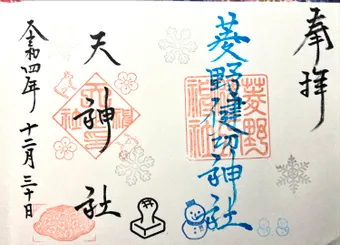 奉拝
菱野健功神社
天神社
令和四年 十二月三十日